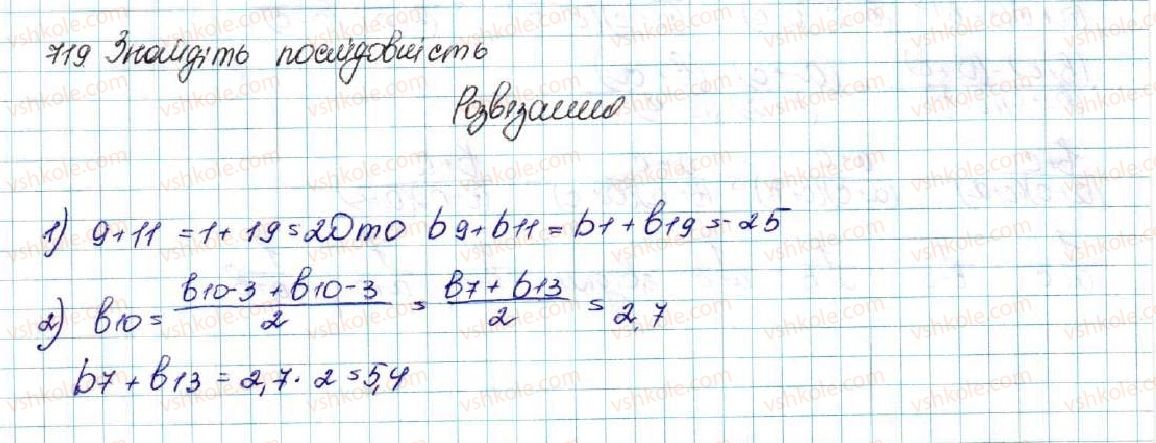 719 Знайдіть послідовність
Розвязання
1) 9+11 = 1+19 = 20 то b9+b11 = b1+b19 = -25
2) b10 = (b10-3 + b10-3)/2 = (b7+b13)/2 = 2,7
b7 + b13 = 2,7 · 2 = 5,4